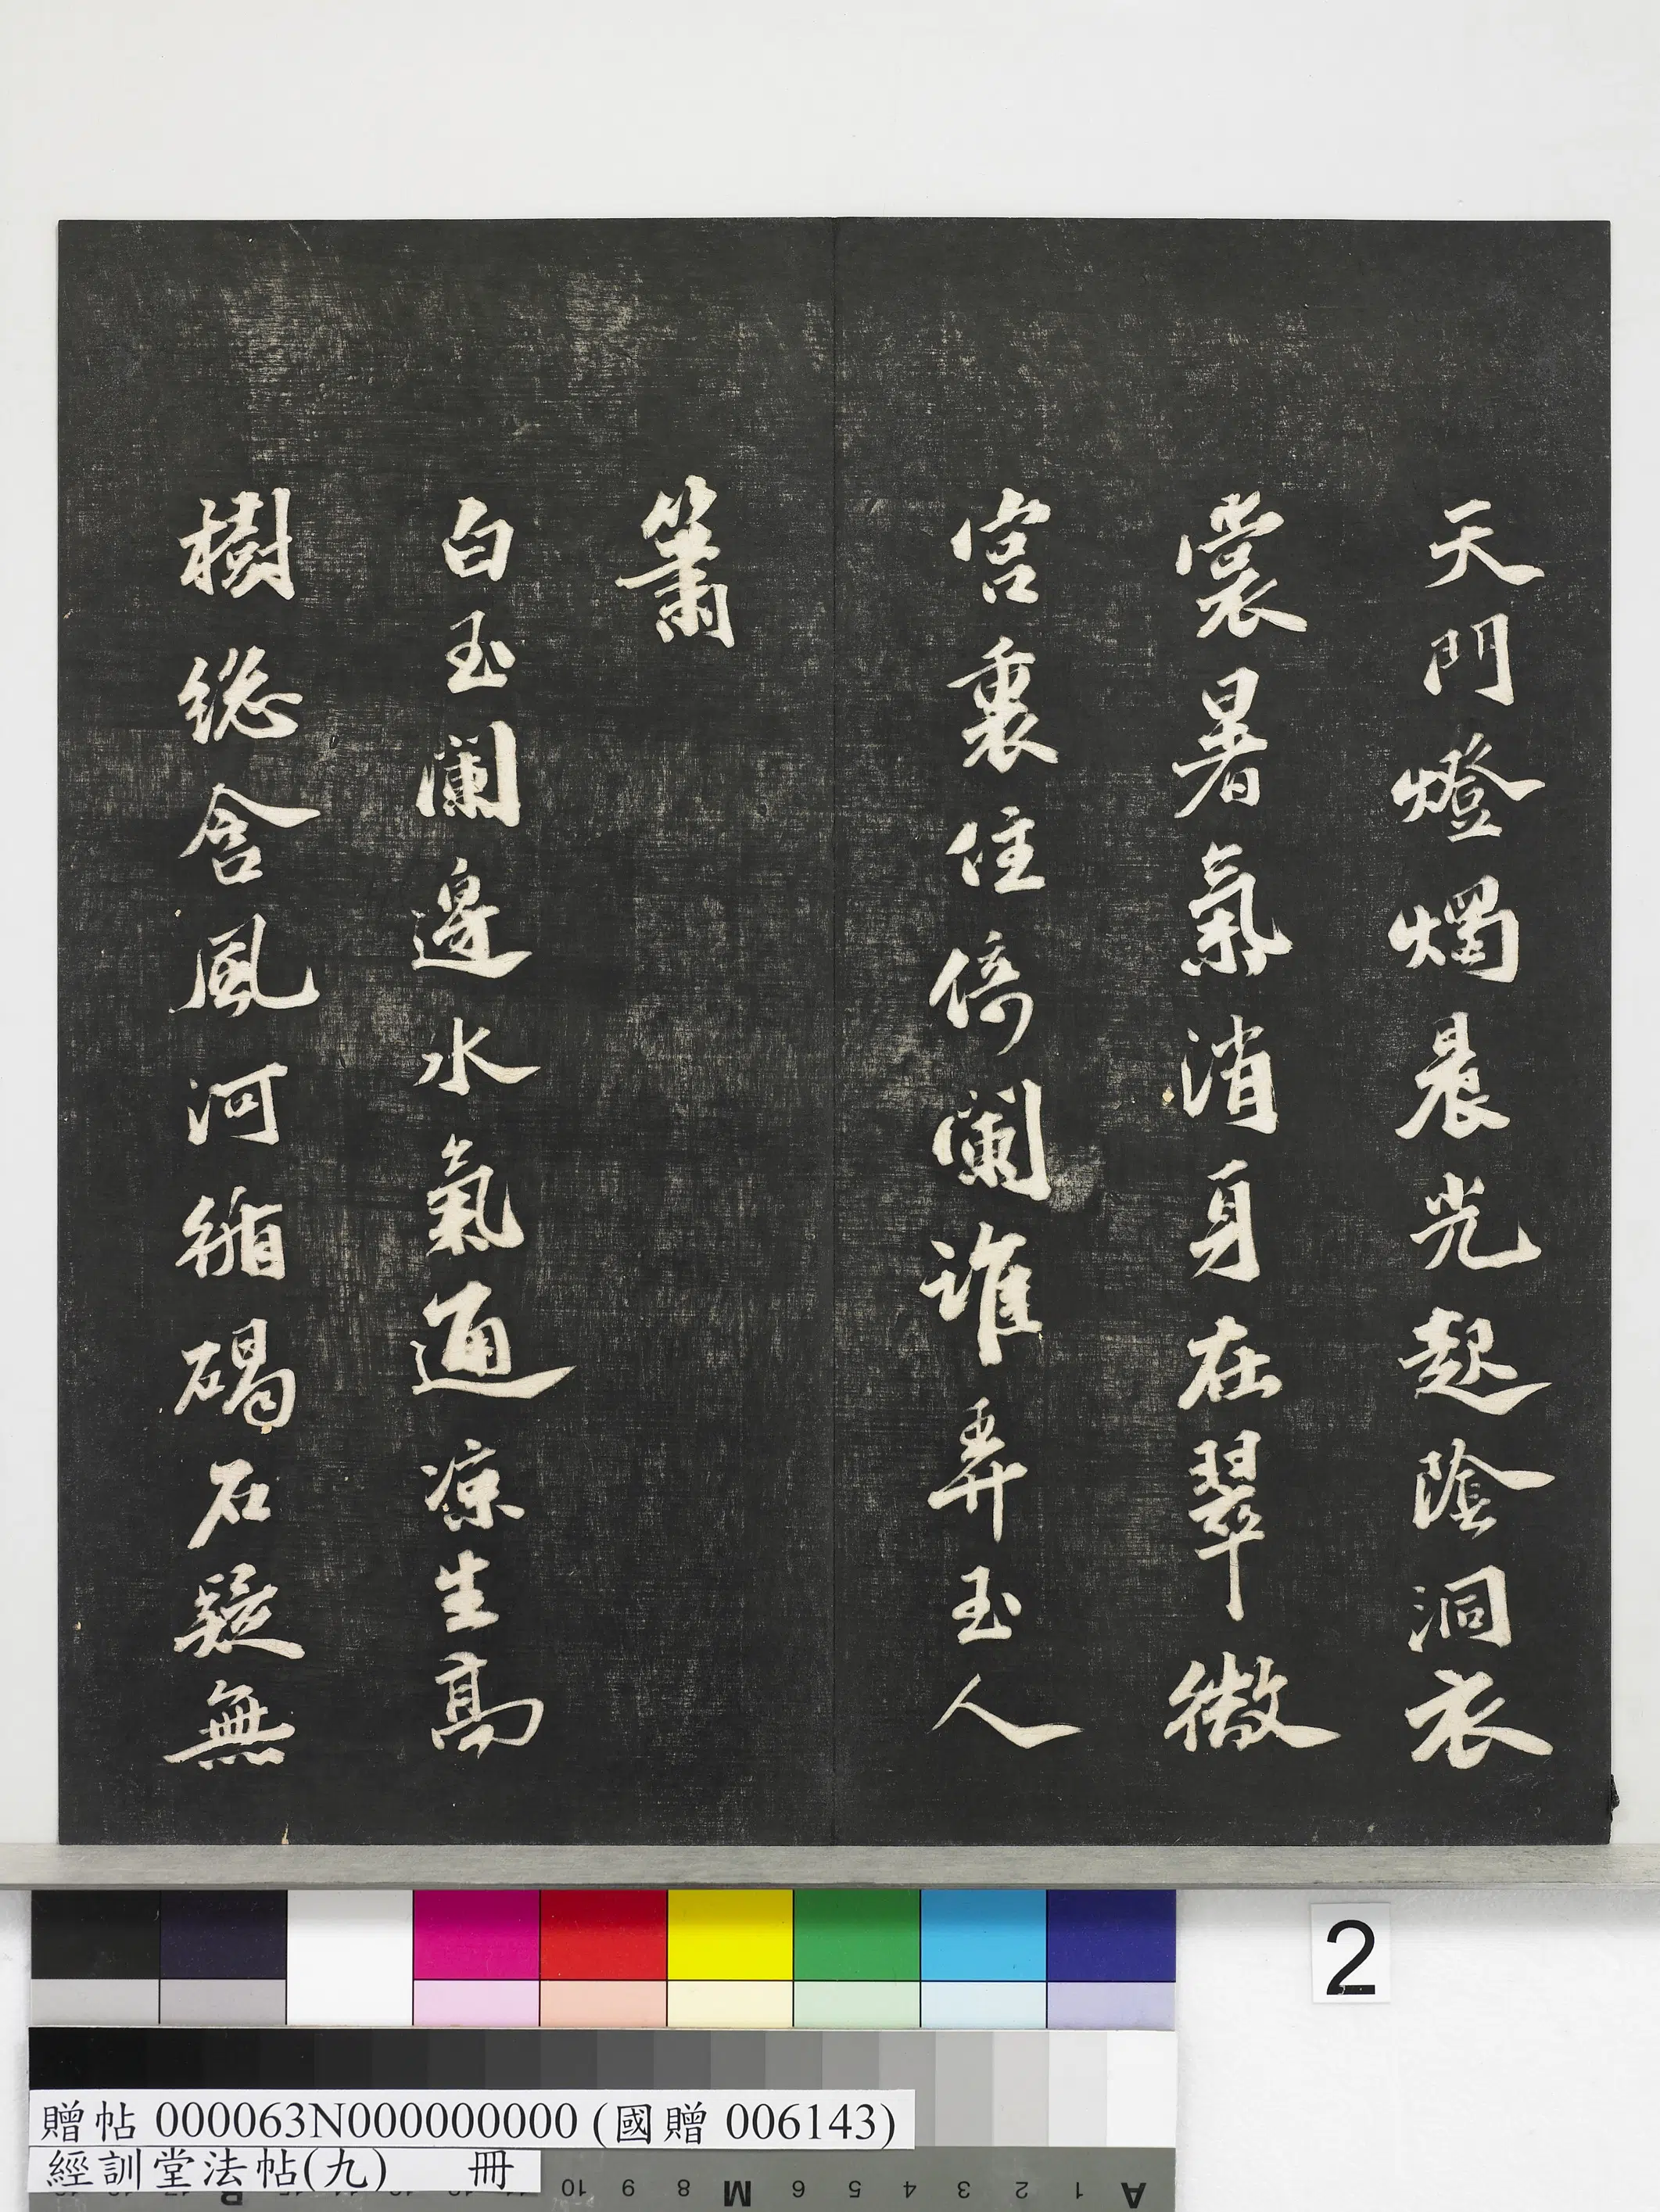 天門燈燭晨光起陰洞衣
裳暑氣消身在翠微
宮裏住倚闌誰弄玉人
簫
白玉闌邊水氣通涼生高
樹總含風河循碣石疑無
2
贈帖 000063N000000000 (國贈 006143)
經訓堂法帖(九) 冊
10 9 8 M 6 5 4 3 2 1 A